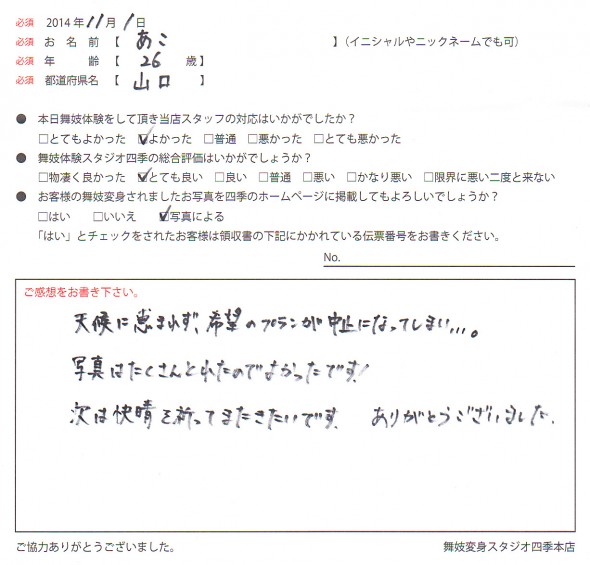 必須 2014年11月1日
必須 お名前【 あこ 】(イニシャルやニックネームでも可)
必須 年齢【 26 歳】
必須 都道府県名【 山口 】
● 本日舞妓体験をして頂き当店スタッフの対応はいかがでしたか?
□とてもよかった ☑よかった □普通 □悪かった □とても悪かった
● 舞妓体験スタジオ四季の総合評価はいかがでしょうか?
□物凄く良かった ☑とても良い □良い □普通 □悪い □かなり悪い □限界に悪い二度と来ない
● お客様の舞妓変身されましたお写真を四季のホームページに掲載してもよろしいでしょうか?
□はい □いいえ ☑写真による
「はい」とチェックをされたお客様は領収書の下記にかかれている伝票番号をお書きください。
No.
ご感想をお書き下さい。
天候に恵まれず、希望のプランが中止になってしまい、、、。
写真はたくさんとれたのでよかったです!
次は快晴を祈ってまたきたいです。 ありがとうございました。
ご協力ありがとうございました。 舞妓変身スタジオ四季本店